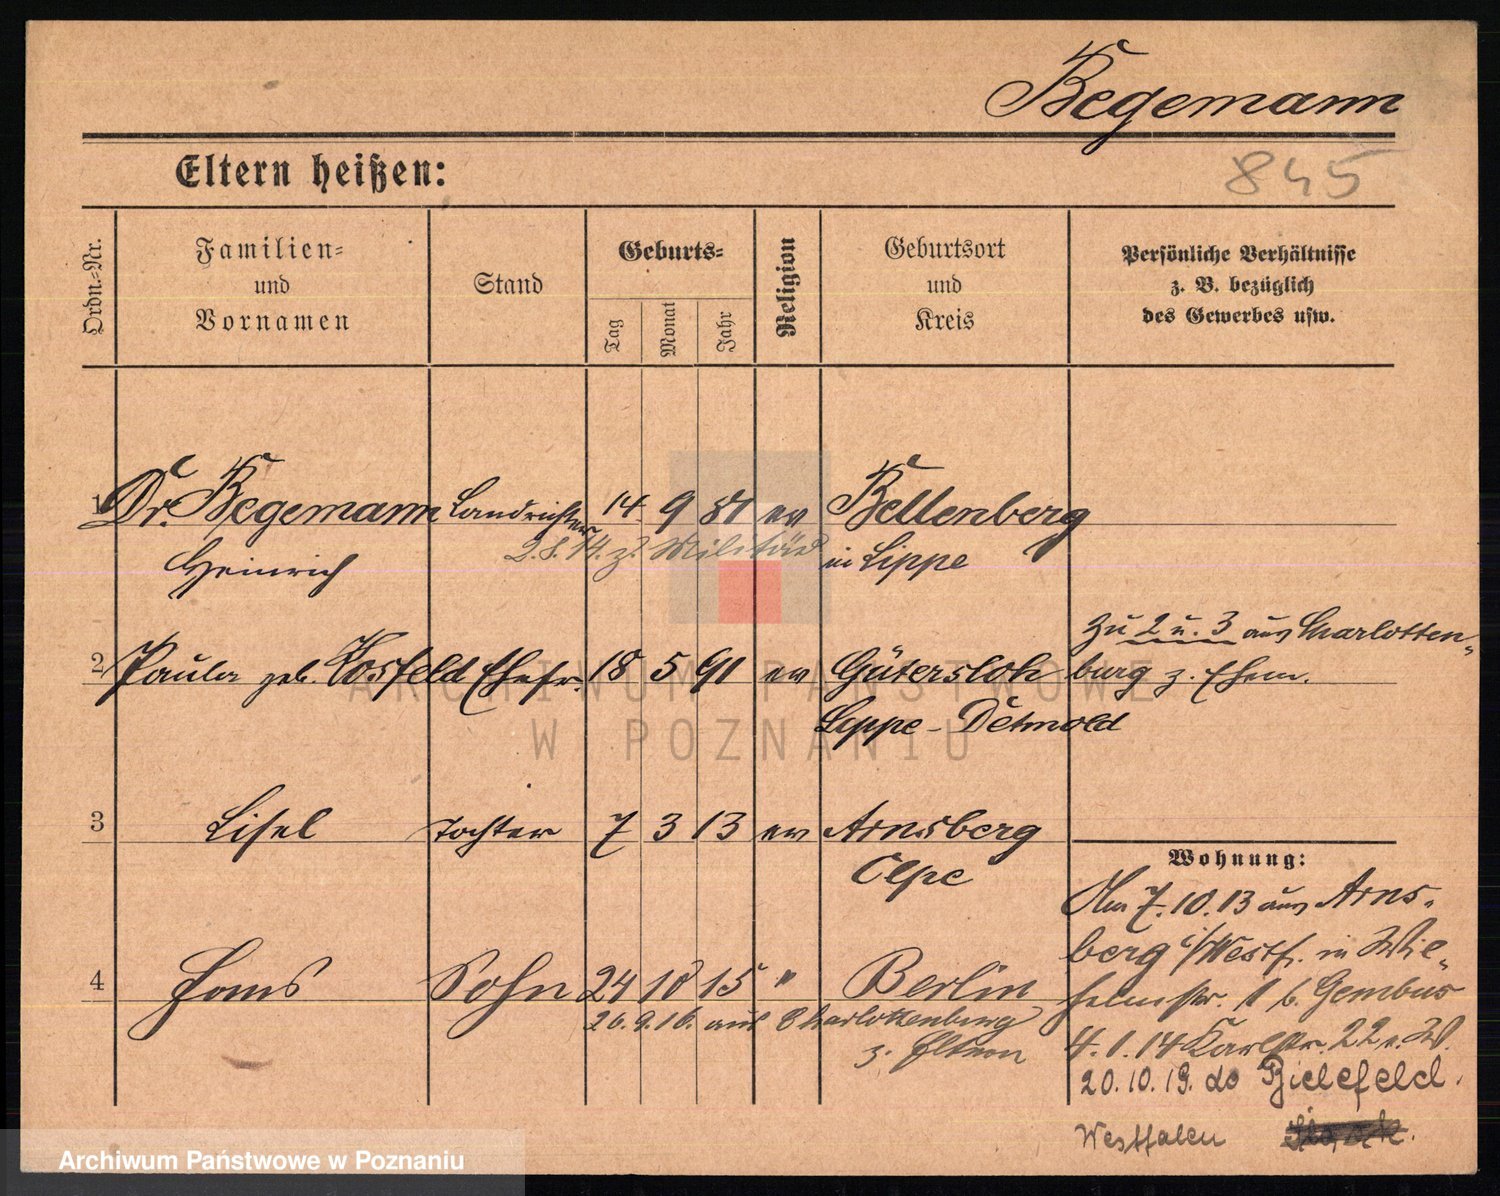 Begemann
Eltern heißen:
845
Ordn.-Nr.
Familien-
und
Vornamen
Stand
Geburts-
Tag
Monat
Jahr
Religion
Geburtsort
und
Kreis
Persönliche Verhältnisse
z. B. bezüglich
des Gewerbes usw.
1 Dr. Begemann Landrichter 14. 9 81 ev Bellenberg
2.8.14. z. Militär
Heinrich in Lippe
zu 2 u. 3 aus Charlotten-
2 Paula geb. Kosfeld Ehefr. 18 5 91 ev Gütersloh burg z. Ehem.
Lippe-Detmold
3 Lisel Tochter 7 3 13 ev Arnsberg
Olpe
Wohnung:
Am 7.10.13 aus Arns-
berg i/Westf. in Wil-
4 Hans Sohn 24 10 15 " Berlin
helmstr. 1 b. Gembus
26.9.16. aus Charlottenburg
z. Eltern
4.1.14 Karlstr. 22 v. W.
20.10.19. do Bielefeld.
Westfalen
ARCHIWUM PAŃSTWOWE
W POZNANIU
Archiwum Państwowe w Poznaniu